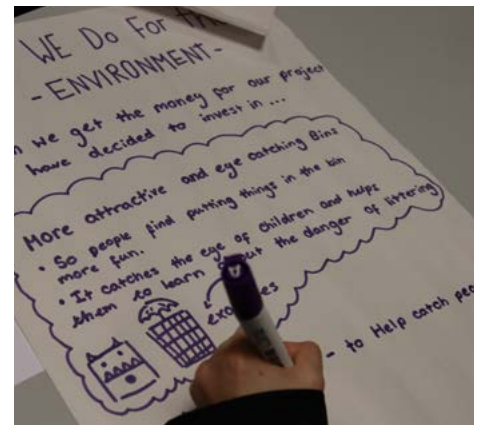 WE Do For the
- ENVIRONMENT -
n we get the money for our project
have decided to invest in ...
More attractive and eye catching Bins
• So people find putting things in the bin
more fun.
• It catches the eye of children and helps
them to learn about the danger of littering
examples
- to Help catch peo